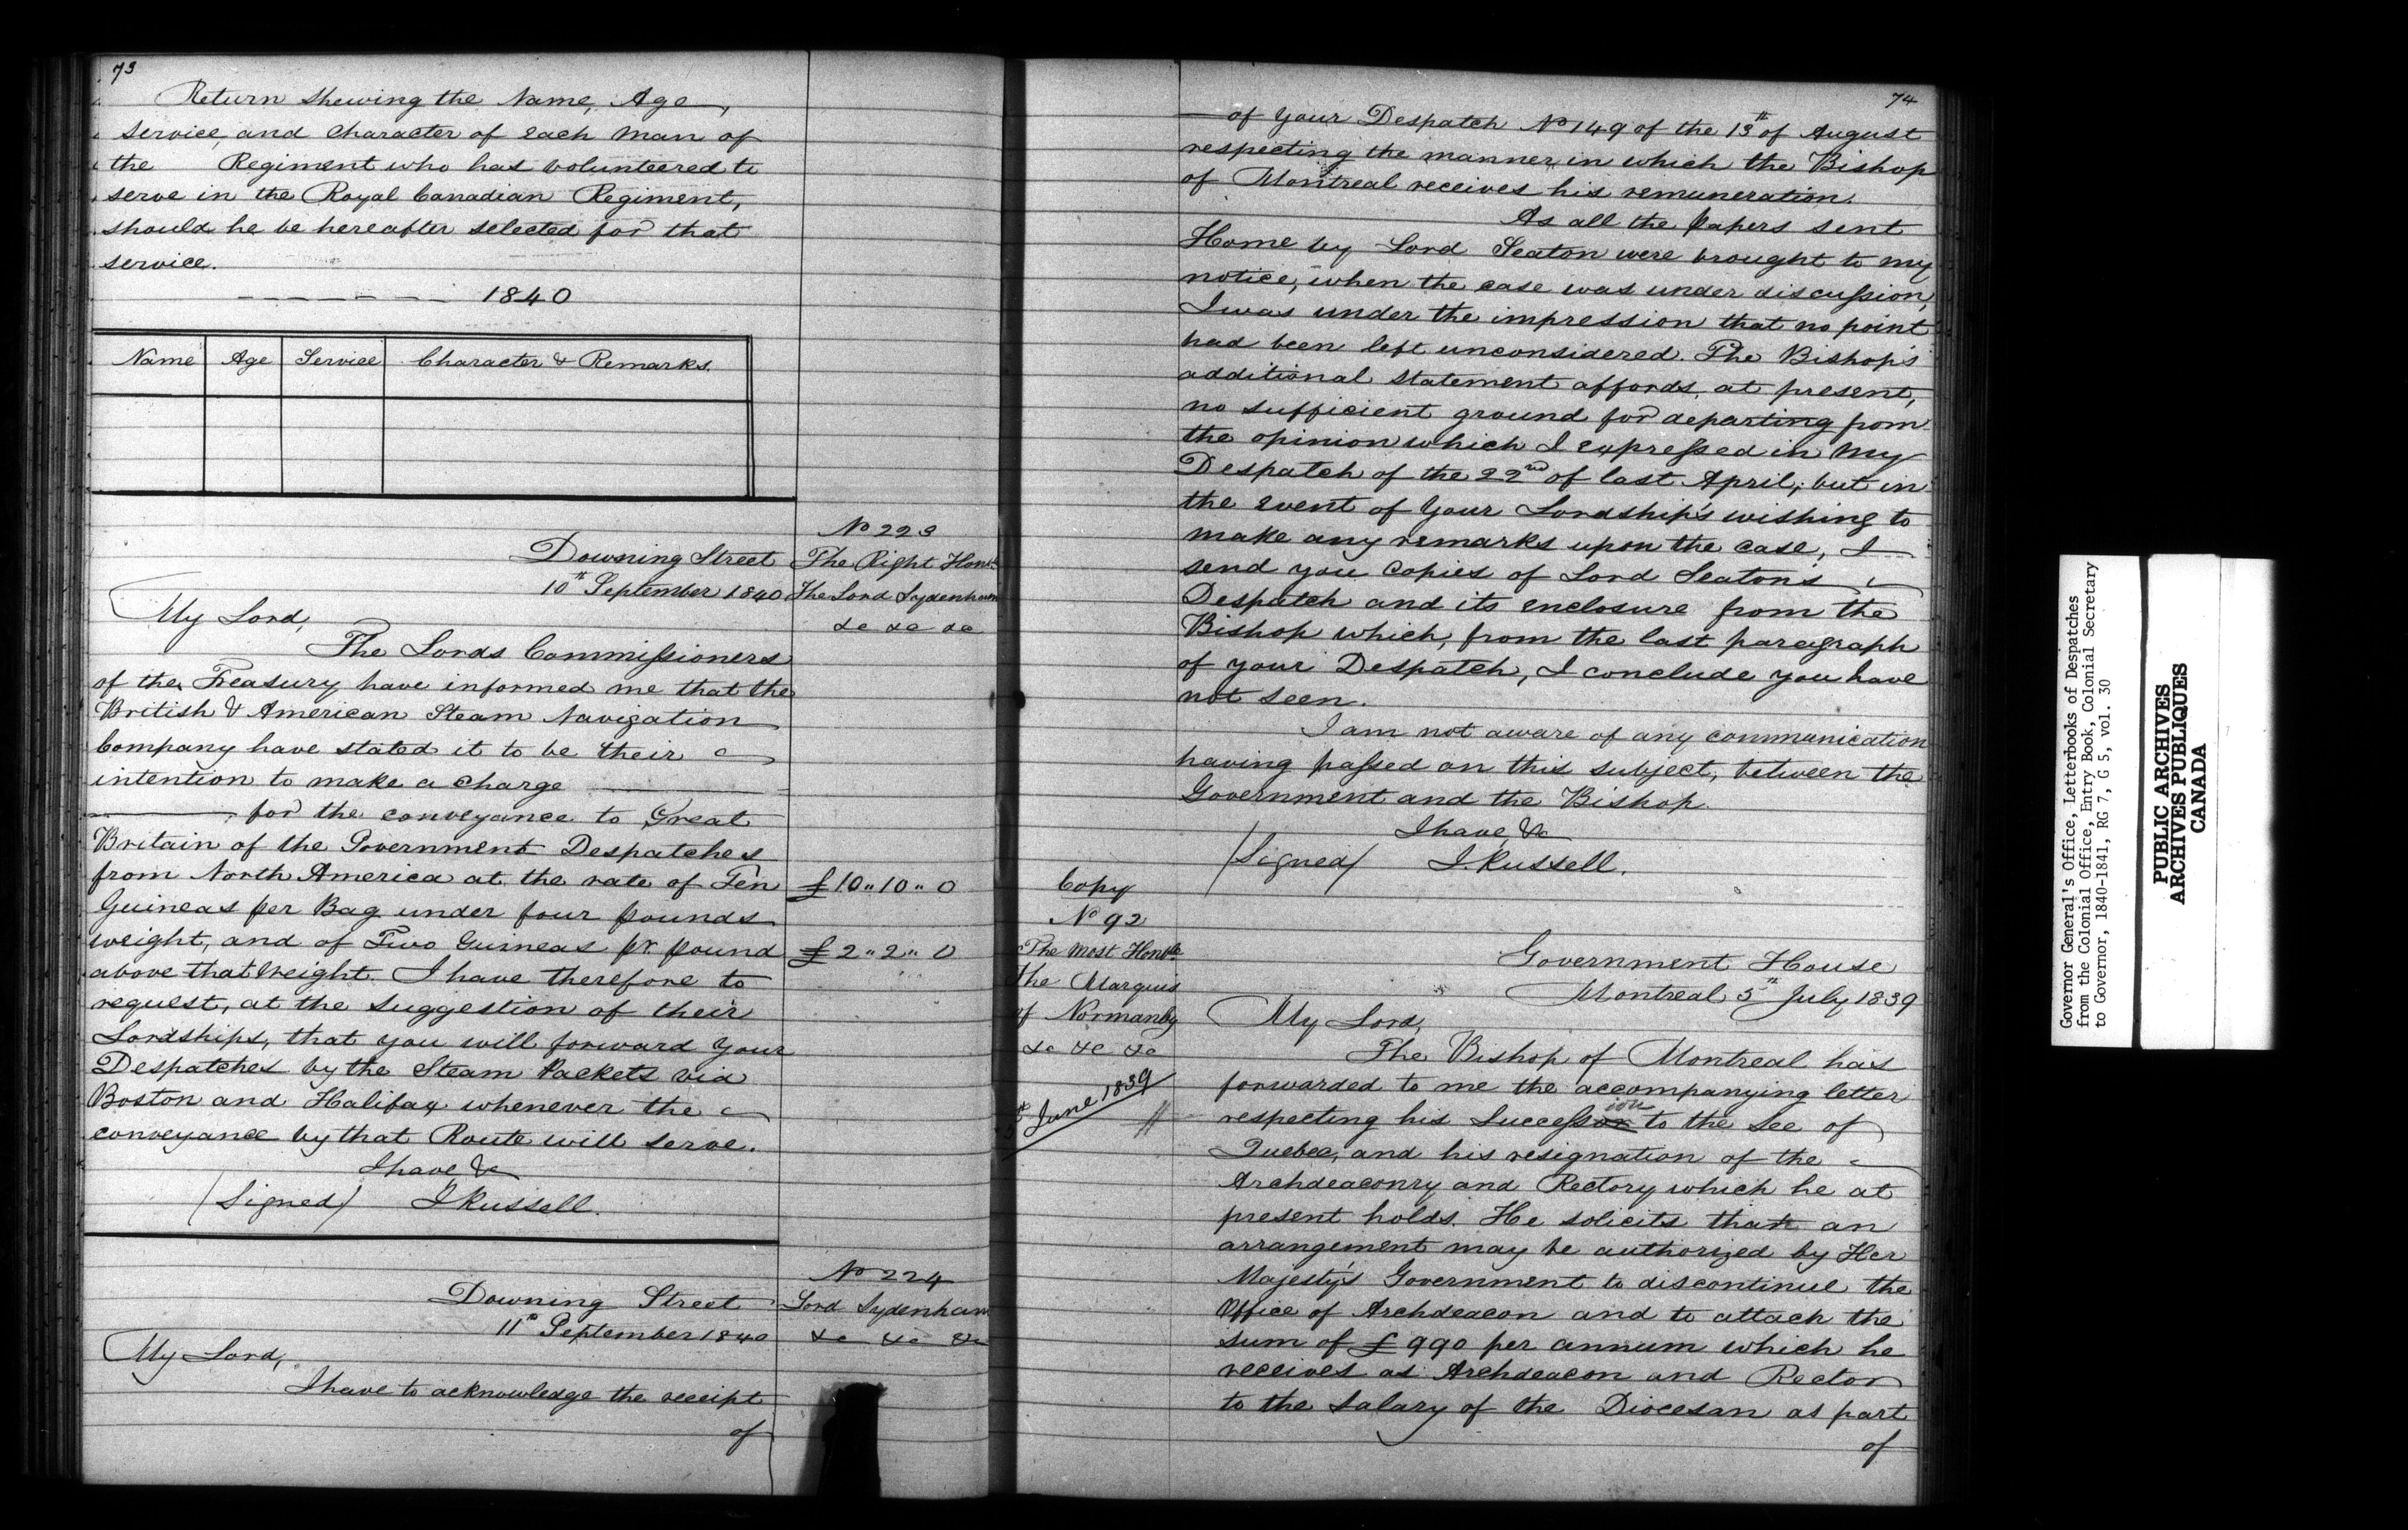 73
Return shewing the Name, Age,
service, and Character of each Man of
the Regiment who has volunteered to
serve in the Royal Canadian Regiment,
should he be hereafter selected for that
service.
— — — — — — 1840
Name Age Service Character & Remarks.
No 223
Downing Street The Right Honble
10th September 1840 The Lord Sydenham
&c &c &c
My Lord,
The Lords Commissioners
of the Treasury have informed me that the
British & American Steam Navigation
Company have stated it to be their
intention to make a charge
for the conveyance to Great
Britain of the Government Despatches
from North America at the rate of Ten £10..10..0
Guineas per Bag under four pounds
weight, and of Two Guineas pr. pound £2..2..0
above that weight. I have therefore to
request, at the suggestion of their
Lordships, that you will forward your
Despatches by the Steam Packets via
Boston and Halifax whenever the
conveyance by that Route will serve.
I have &c
(Signed) J Russell.
No 224
Downing Street Lord Sydenham
11th September 1840 &c &c &c
My Lord,
I have to acknowledge the receipt
of
74
of your Despatch No 149 of the 13th of August
respecting the manner in which the Bishop
of Montreal receives his remuneration.
As all the papers sent
Home by Lord Seaton were brought to my
notice, when the case was under discussion,
I was under the impression that no point
had been left unconsidered. The Bishop's
additional statement affords, at present,
no sufficient ground for departing from
the opinion which I expressed in my
Despatch of the 22nd of last April; but in
the event of Your Lordship's wishing to
make any remarks upon the case, I
send you copies of Lord Seaton's
Despatch and its enclosure from the
Bishop which, from the last paragraph
of your Despatch, I conclude you have
not seen.
I am not aware of any communication
having passed on this subject, between the
Government and the Bishop.
I have &c
(Signed) J. Russell.
Copy
No 92
The Most Honble
the Marquis
of Normanby
&c &c &c
June 1839
Government House
Montreal 5th July 1839
My Lord,
The Bishop of Montreal has
forwarded to me the accompanying letter
respecting his Succession to the See of
Quebec, and his resignation of the
Archdeaconry and Rectory which he at
present holds. He solicits that an
arrangement may be authorized by Her
Majesty's Government to discontinue the
Office of Archdeacon and to attach the
sum of £990 per annum which he
receives as Archdeacon and Rector
to the Salary of the Diocesan as part
of
Governor General's Office, Letterbooks of Despatches
from the Colonial Office, Entry Book, Colonial Secretary
to Governor, 1840-1841, RG 7, G 5, vol. 30
PUBLIC ARCHIVES
ARCHIVES PUBLIQUES
CANADA